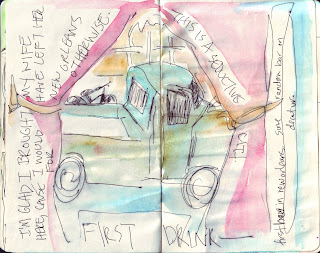 I'M GLAD I BROUGHT MY WIFE
HERE, CAUSE I WOULD HAVE LEFT HER
FOR NEW ORLEANS
OTHERWISE.
THIS IS A SEDUCTIVE
CITY
FIRST DRINK
in new orleans some random bar in